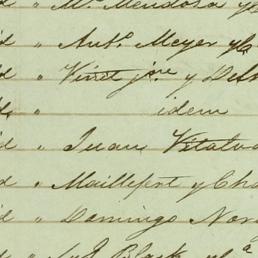 d " M. Mendosa y
d " Ant.º Meyer y C
d " Vinet j.ne y Del
d " idem
d " Juan Vilalva
d " Maillefert y Cha
d " Domingo Nor
Black y